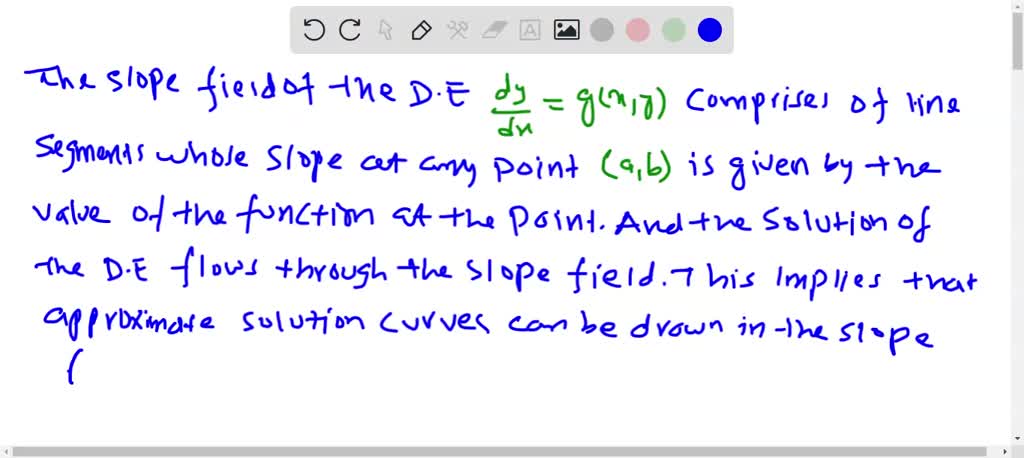 The slope field of the D.E dy/dx = g(x,y) comprises of line
segments whose slope at any point (a,b) is given by the
value of the function at the point. And the solution of
the D.E flows through the slope field. This implies that
approximate solution curves can be drawn in the slope
(